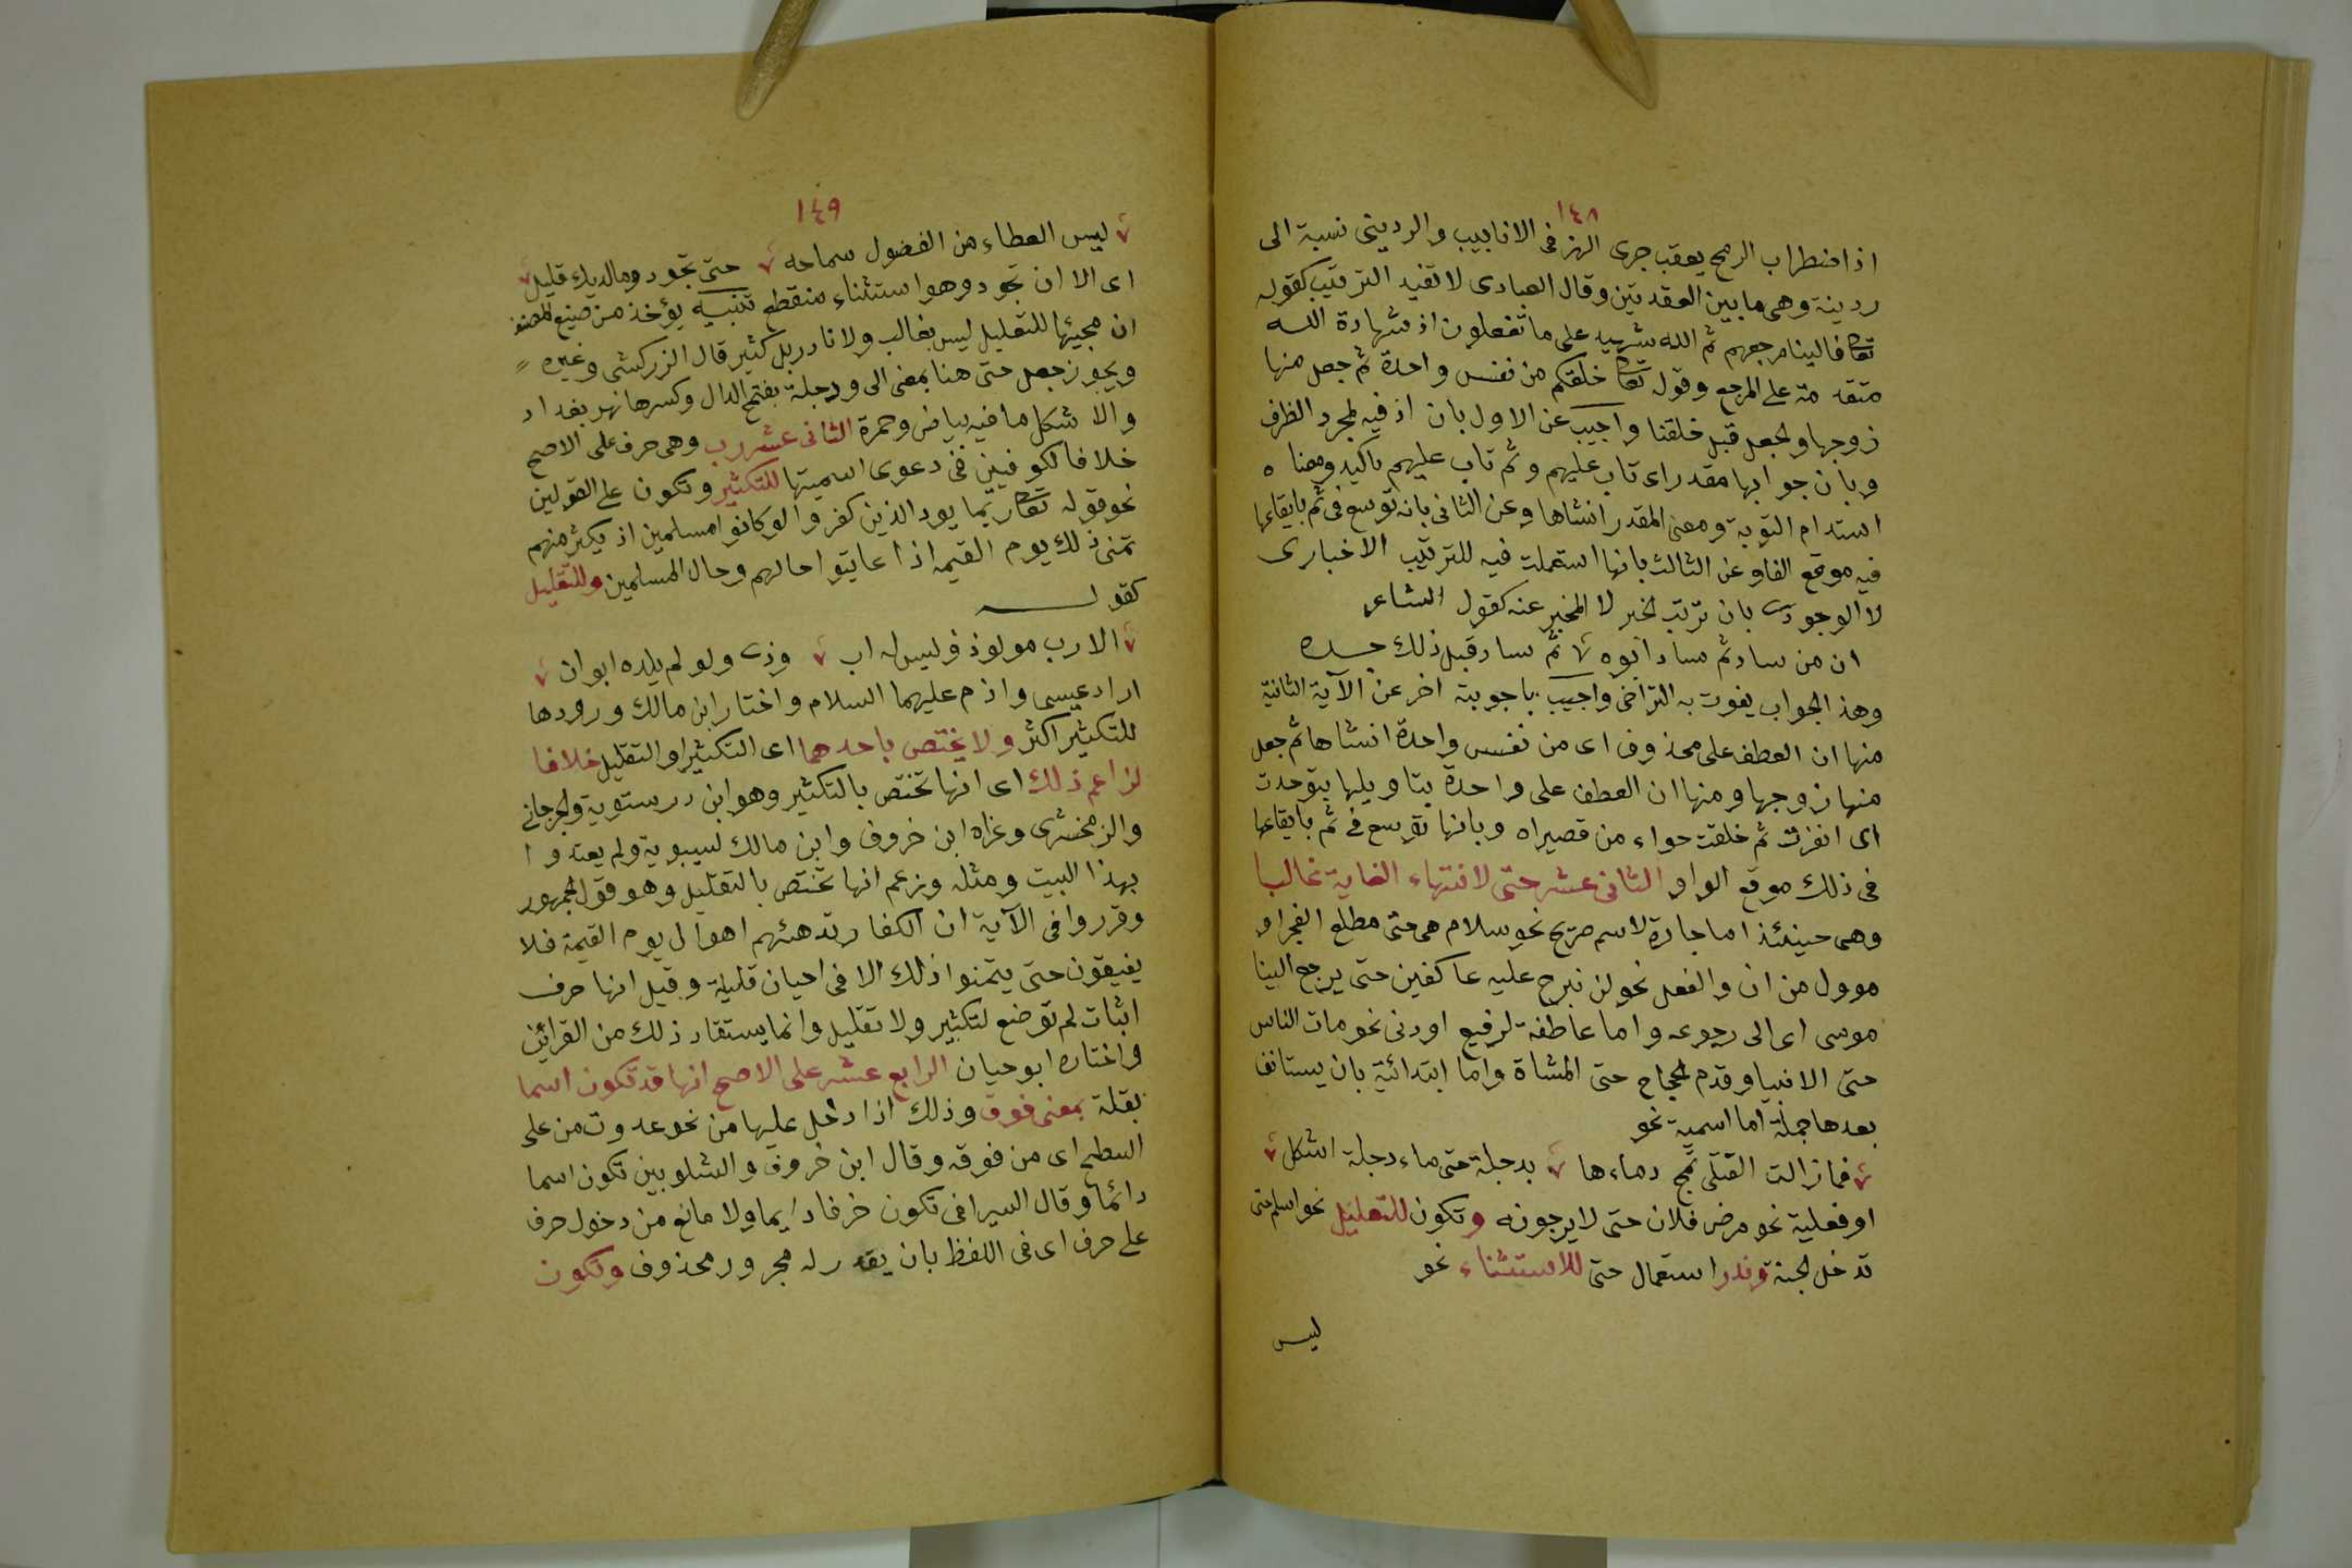 ١٤٨
اذا اضطراب الرمح يعقب جرى الهز فى الانابيب والردينى نسبة الى
ردينة وهى ما بين العقدتين وقال العبادى لا تفيد الترتيب كقوله
تعا فالينا مرجعهم ثم الله شهيد على ما تفعلون اذ شهادة الله
متقدمة على المرجع وقوله تعا خلقكم من نفس واحدة ثم جعل منها
زوجها والجعل قبل خلقنا واجيب عن الاول بان اذ فيه لمجرد الظرف
وبان جوابها مقدر اى تاب عليهم وثم تاب عليهم تاكيد ومعناه
استدام التوبة ومعنى المقدر انشاها وعن الثانى بانه توسع فى ثم بايقاعها
فيه موقع الفا وعن الثالث بانها استعملت فيه للترتيب الاخبارى
لا الوجودى بان ترتب الخبر لا المخبر عنه كقول الشاعر
ان من ساد ثم ساد ابوه ثم ساد قبل ذلك جده
وهذ الجواب يفوت به التراخى واجيب باجوبة اخر عن الآية الثانية
منها ان العطف على محذوف اى من نفس واحدة انشاها ثم جعل
منها زوجها ومنها ان العطف على واحدة بتاويلها بتوحدت
اى انفردت ثم خلقت حواء من قصيراه وبانها توسع فى ثم بايقاعها
فى ذلك موقع الواو الثانى عشر حتى لانتهاء الغاية غالبا
وهى حينئذ اما جارة لاسم صريح نحو سلام هى حتى مطلع الفجر او
موول من ان والفعل نحو لن نبرح عليه عاكفين حتى يرجع الينا
موسى اى الى رجوعه واما عاطفة لرفيع او دنى نحو مات الناس
حتى الانبيا وقدم الحجاج حتى المشاة واما ابتدائية بان يستانف
بعدها جملة اما اسمية نحو
فمازالت القتلى تمج دماءها بدجلة حتى ماء دجلة اشكل
او فعلية نحو مرض فلان حتى لا يرجونه وتكون للتعليل نحو اسلم حتى
تدخل الجنة وندر استعمال حتى للاستثناء نحو
ليس
١٤٩
ليس العطاء من الفضول سماحه حتى تجود وما لديك قليل
اى الا ان تجود وهو استثناء منقطع تنبيه يؤخذ من صنيع المصنف
ان مجيئها للتعليل ليس بغالب ولا نادر بل كثير قال الزركشى وغيره
ويجوز جعل حتى هنا بمعنى الى ودجلة بفتح الدال وكسرها نهر بغداد
والاشكل ما فيه بياض وحمرة الثانى عشر رب وهى حرف على الاصح
خلافا لكوفيين فى دعوى اسميتها للتكثير وتكون على القولين
نحو قوله تعا ربما يود الذين كفروا لو كانوا مسلمين اذ يكثر منهم
تمنى ذلك يوم القيمه اذا عاينوا حالهم وحال المسلمين وللتقليل
كقوله
الا رب مولود وليس له اب وذى ولو لم يلده ابوان
اراد عيسى واذم عليهما السلام واختار ابن مالك ورودها
للتكثير اكثر ولا يختص باحدهما اى التكثير او التقليل خلافا
لزاعم ذلك اى انها تختص بالتكثير وهو ابن درستوية والجرجانى
والزمخشرى وعزاه ابن خروف وابن مالك لسيبوية ولم يعتدوا
بهذا البيت ومثله وزعم انها تختص بالتقليل وهو قول الجمهور
وقرروا فى الآية ان الكفار تدهشهم اهوال يوم القيمة فلا
يفيقون حتى يتمنوا ذلك الا فى احيان قليلة وقيل انها حرف
اثبات لم توضع لتكثير ولا تقليل وانما يستفاد ذلك من القرائن
واختاره ابو حيان الرابع عشر على الاصح انها قد تكون اسما
بقلة بمعنى فوق وذلك اذا دخل عليها من نحو عدوت من على
السطح اى من فوقه وقال ابن خروف والشلوبين تكون اسما
دائما وقال السيرافى تكون حرفا دايما ولا مانع من دخول حرف
على حرف اى فى اللفظ بان يقدر له مجرور محذوف وتكون